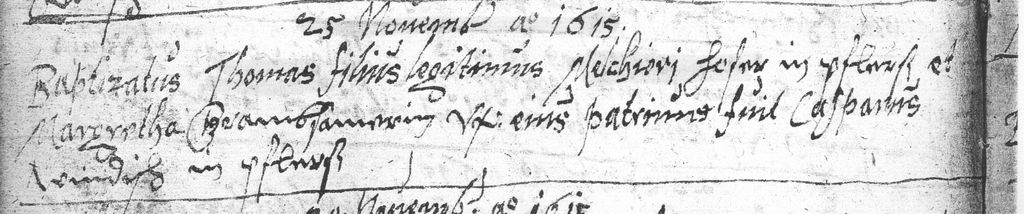 25 Novemb: aō 1615.
Baptizatus Thomas filius legitimus Melchiori Hofer in pflersch et
Margretha Grambsamerin Vx: eius patrinus fuit Casparus
Windisch in pflersch
Novemb: aō 1615